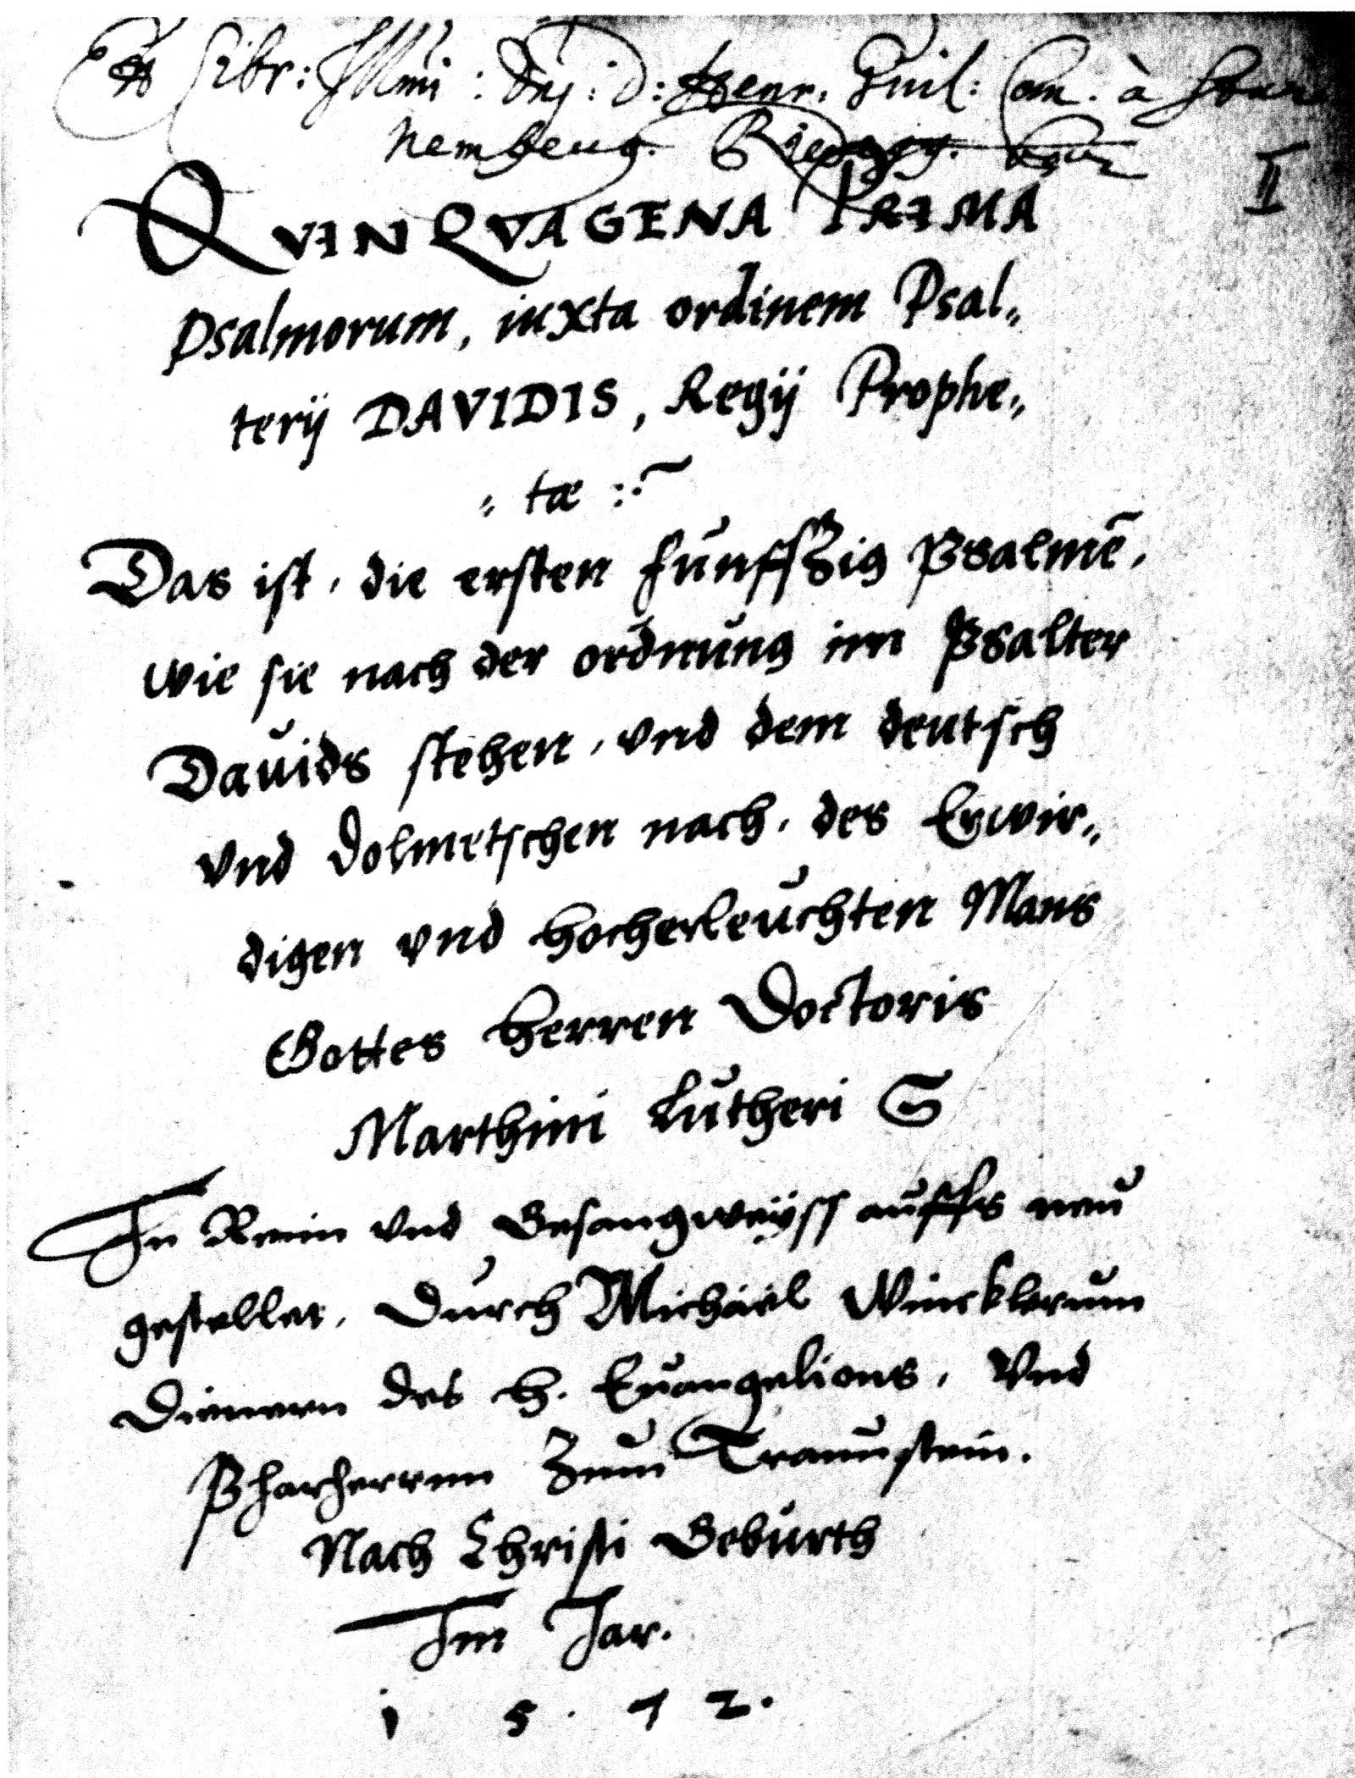 Ex Libr: Illmi: Dnj: D: Henr. Guil: Com. à
II
QVINQVAGENA PRIMA
Psalmorum, iuxta ordinem Psal„
terij DAVIDIS, Regij Prophe„
„ tæ :~
Das ist, die ersten funffzig Psalmē,
wie sie nach der ordnung im Psalter
Dauids stehen, vnd dem deutsch
vnd dolmetschen nach, des Erwir„
digen vnd hocherleuchten Mans
Gottes Herren Doctoris
Marthini Lutheri S
In Reim vnd Gesangweyss auffs neu
gestellet, Durch Michaël Wincklerum
Dienern des H. Euangelions, Vnd
Pharherrnn Zum Traunstein.
Nach Christi Geburth
Im Jar.
1 5 . 7 2 .